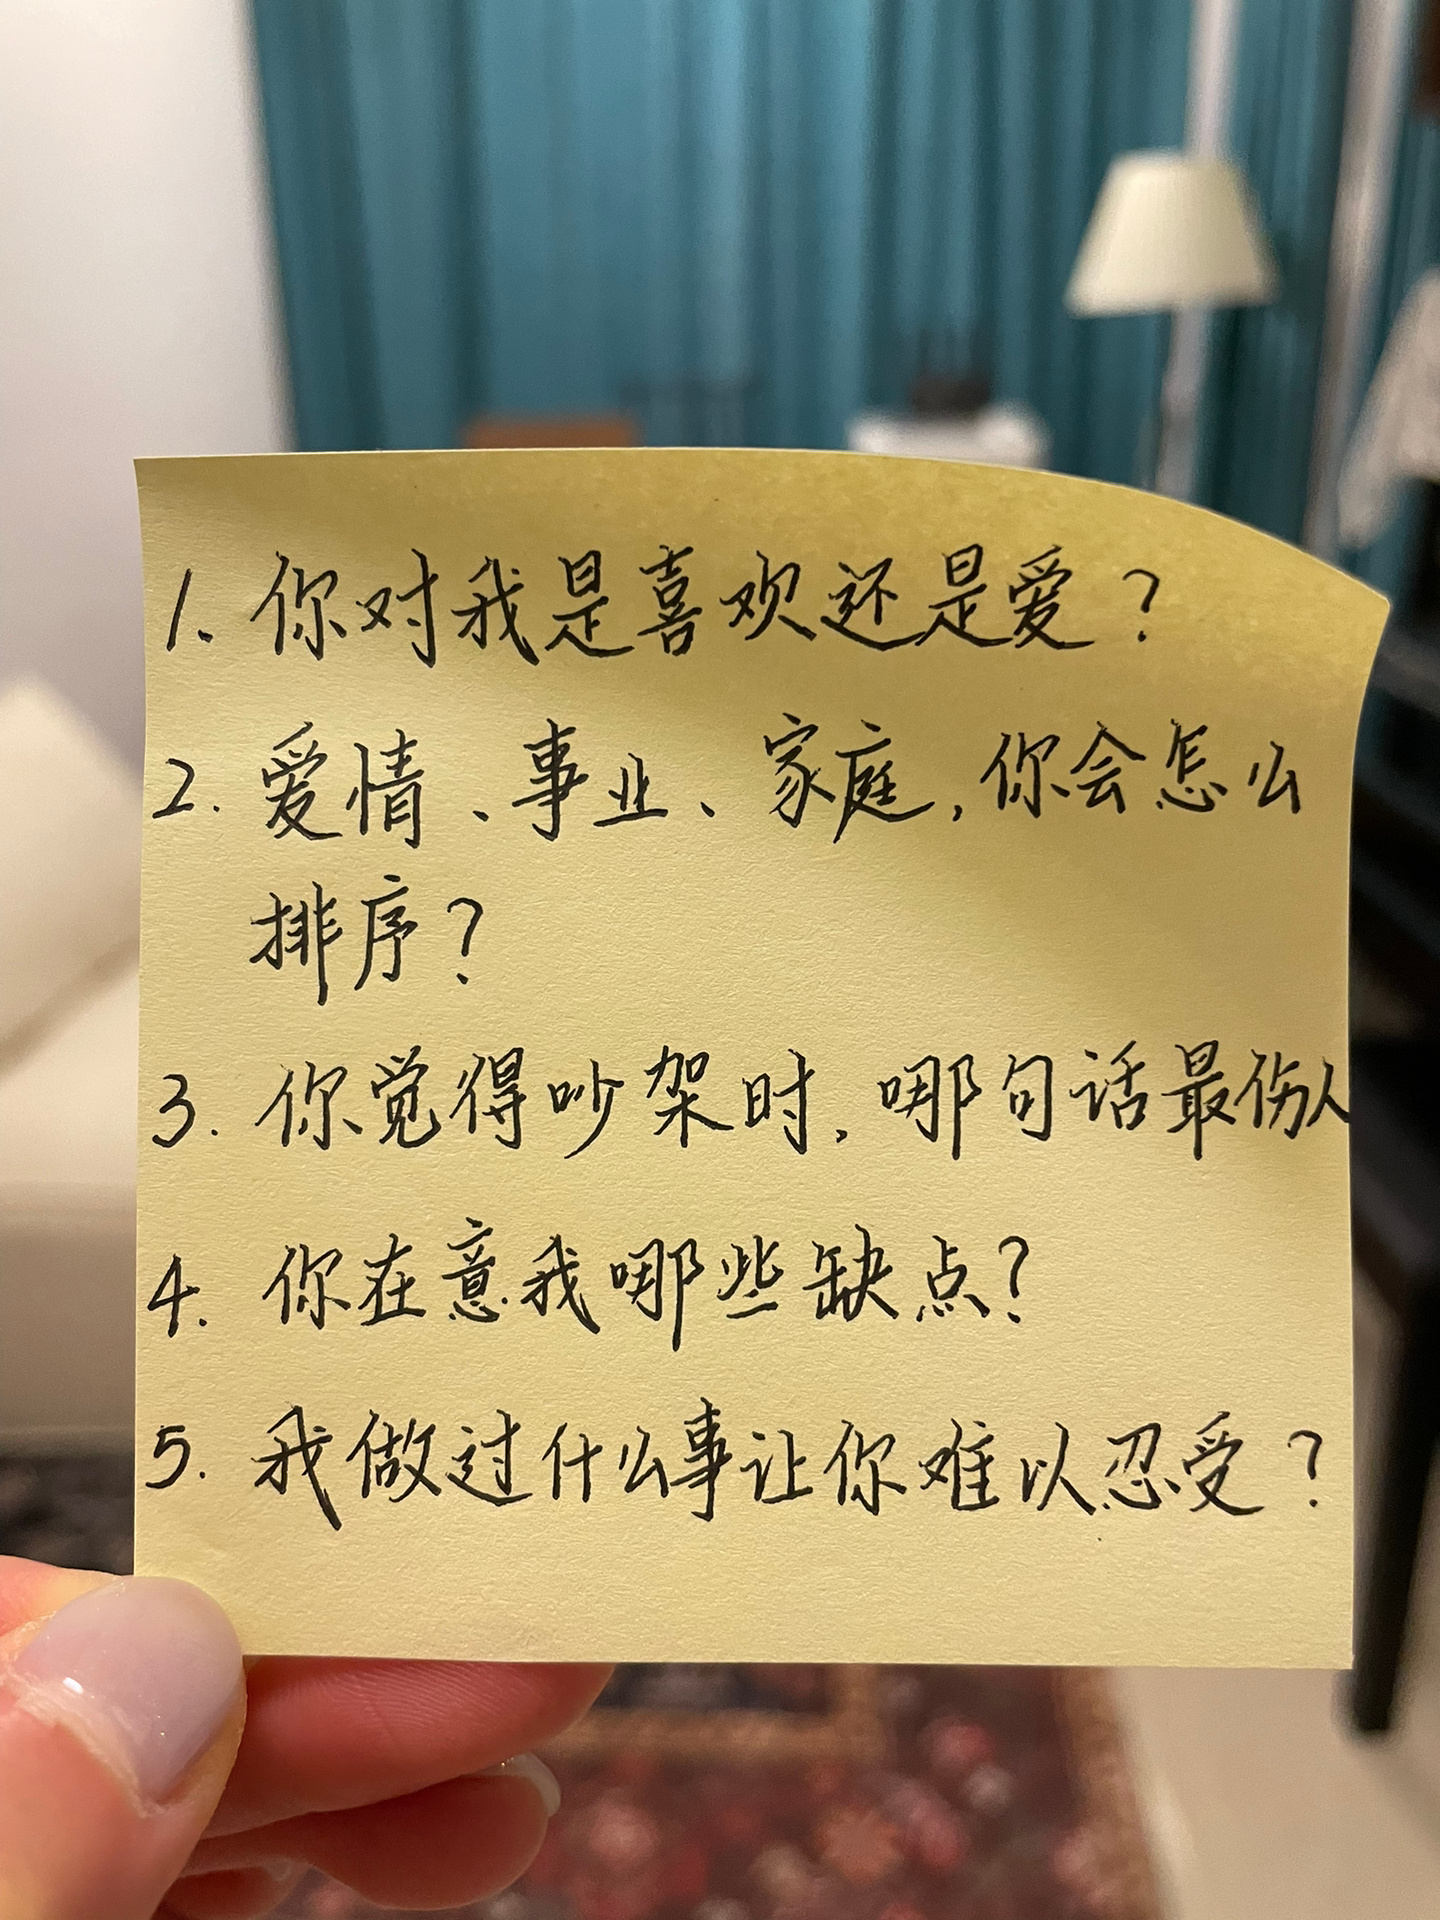 1. 你对我是喜欢还是爱？
2. 爱情、事业、家庭，你会怎么
排序？
3. 你觉得吵架时，哪句话最伤人
4. 你在意我哪些缺点？
5. 我做过什么事让你难以忍受？